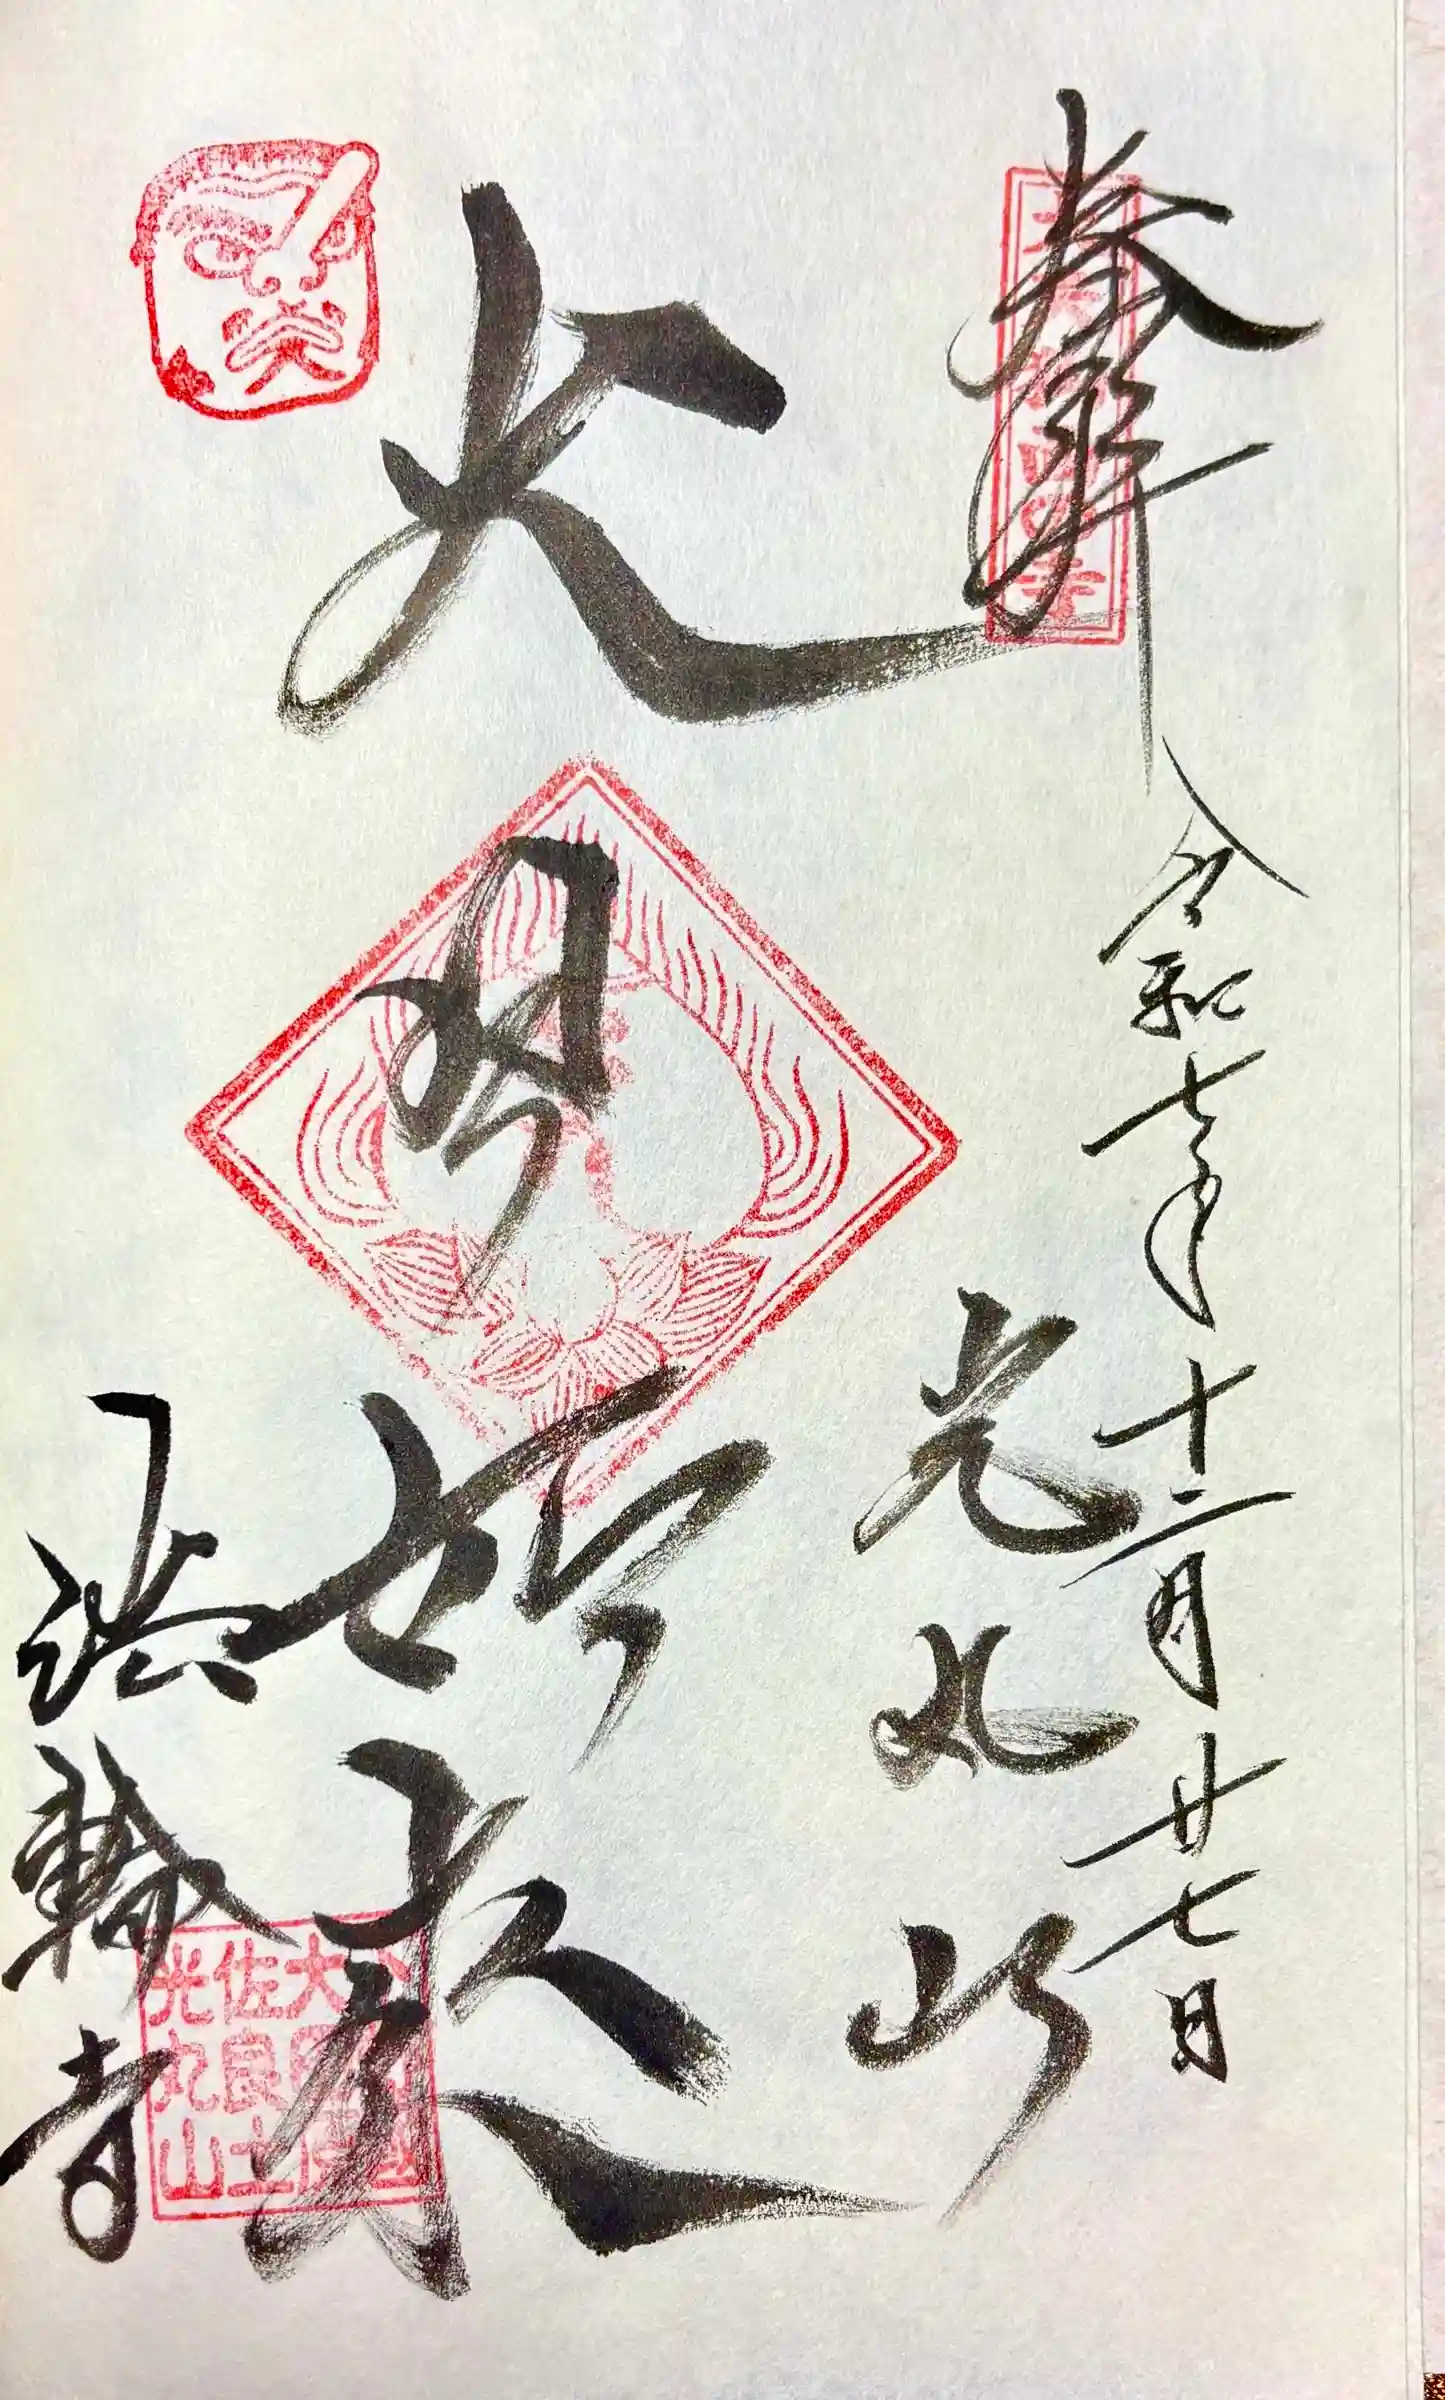 奉拝
令和七年十二月廿七日
光丸山
大日如来
法輪寺
大田原
佐良土
光丸山